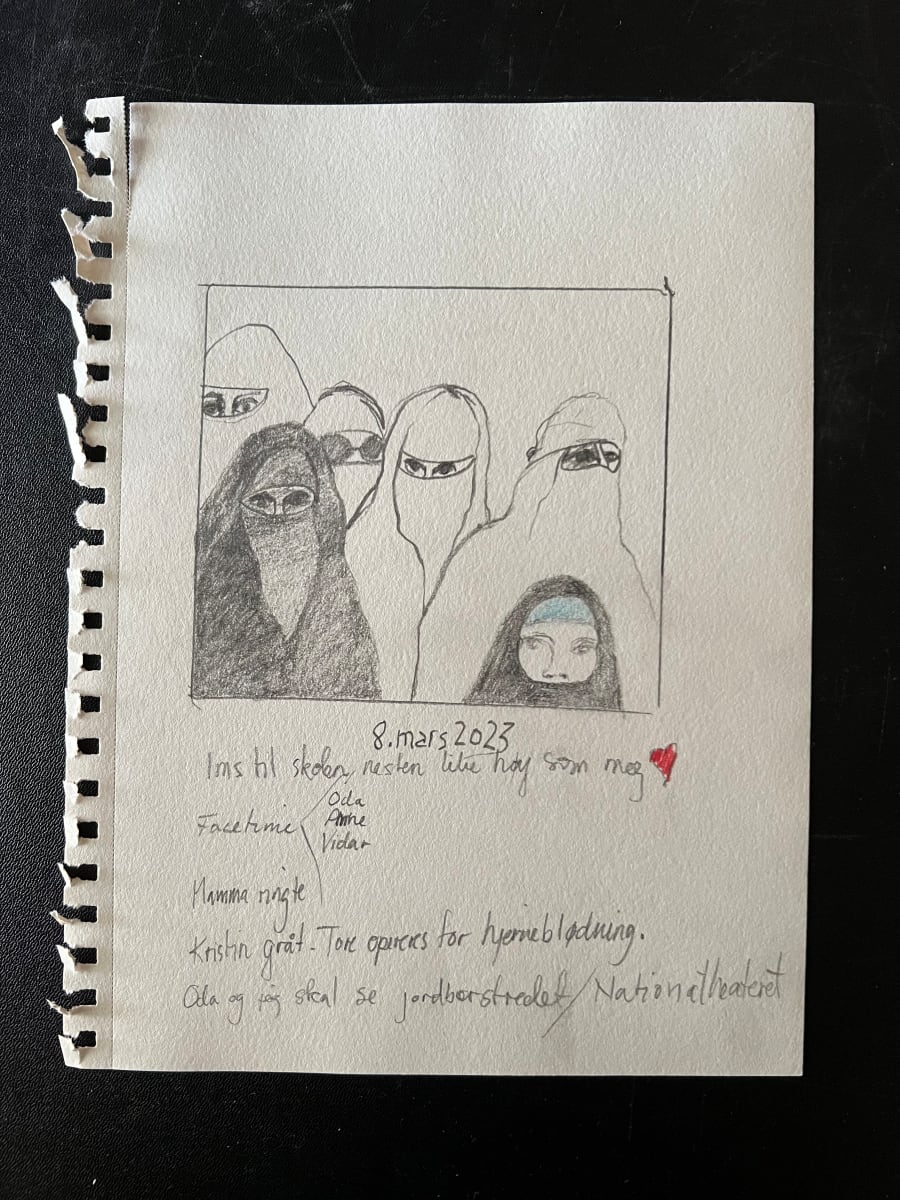 8. mars 2023
til skolen, nesten like høy som meg
Facetime
Oda
Anne
Vidar
Mamma ringte
Kristin gråt - Tore opereres for hjerneblødning.
Oda og jeg skal se jordbærstredet / Nationaltheateret